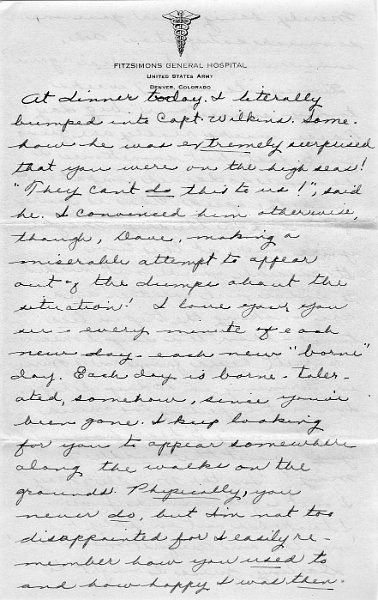 FITZSIMONS GENERAL HOSPITAL
UNITED STATES ARMY
DENVER, COLORADO
At dinner today, I literally
bumped into Capt. Wilkins. Some-
how he was extremely surprised
that you were on the high seas!
"They can't do this to us!", said
he. I convinced him otherwise,
though, Dave, making a
miserable attempt to appear
out of the dumps about the
situation! I love you, you
see - every minute of each
new day - each new "borne"
day. Each day is borne - toler-
ated, somehow, since you've
been gone. I keep looking
for you to appear somewhere
along the walks on the
grounds. Physically, you
never do, but I'm not too
disappointed for I easily re-
member how you used to
and how happy I was then.